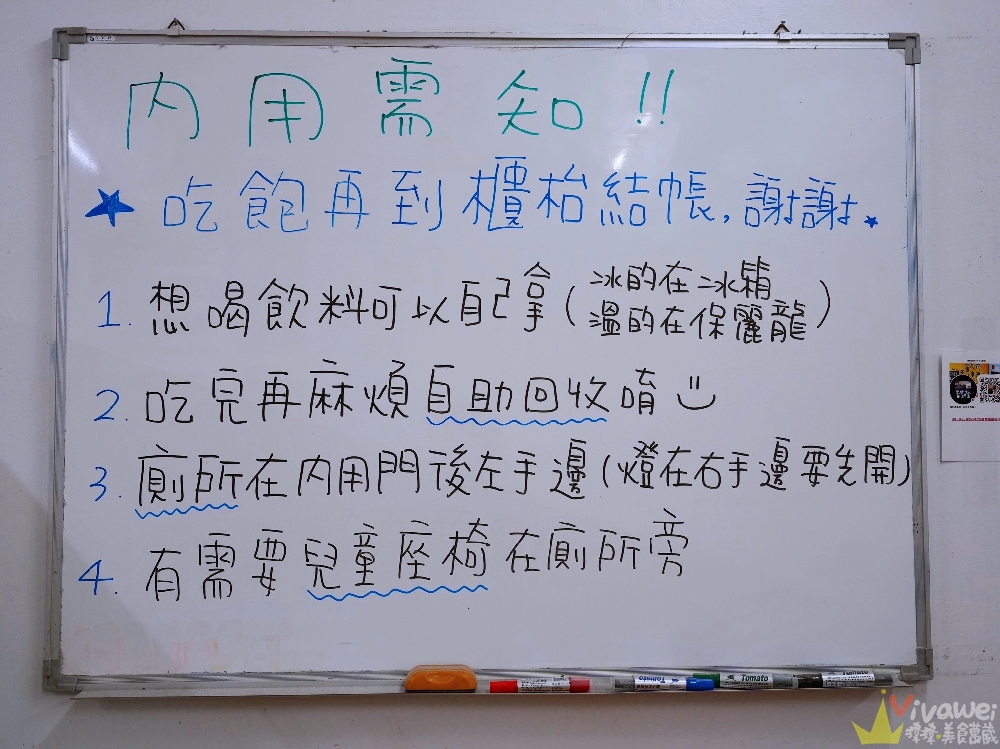 內用需知!!
★吃飽再到櫃枱結帳,謝謝★
1. 想喝飲料可以自己拿(冰的在冰箱
溫的在保麗龍)
2. 吃完再麻煩自助回收唷
3. 廁所在內用門後左手邊(燈在右手邊要先開)
4. 有需要兒童座椅在廁所旁
Tomato
Tomato
Vivawei
瑋瑋*美食萬歲